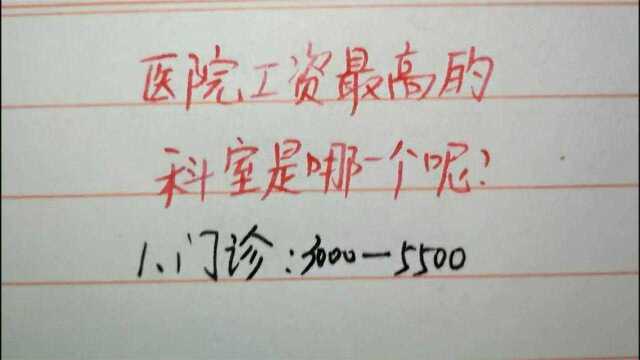 医院工资最高的
科室是哪一个呢?
1、门诊:3000—5500